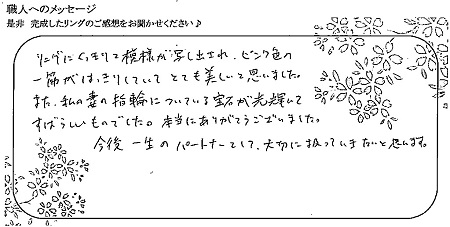 職人へのメッセージ
是非 完成したリングのご感想をお聞かせください♪
リングにくっきりと模様が写し出され、ピンク色の
一筋がはっきりしていて とても美しいと思いました。
また、私の妻の指輪についている宝石が光輝いて
すばらしいものでした。本当にありがとうございました。
今後 一生の パートナーとして、大切に扱っていきたいと思います。